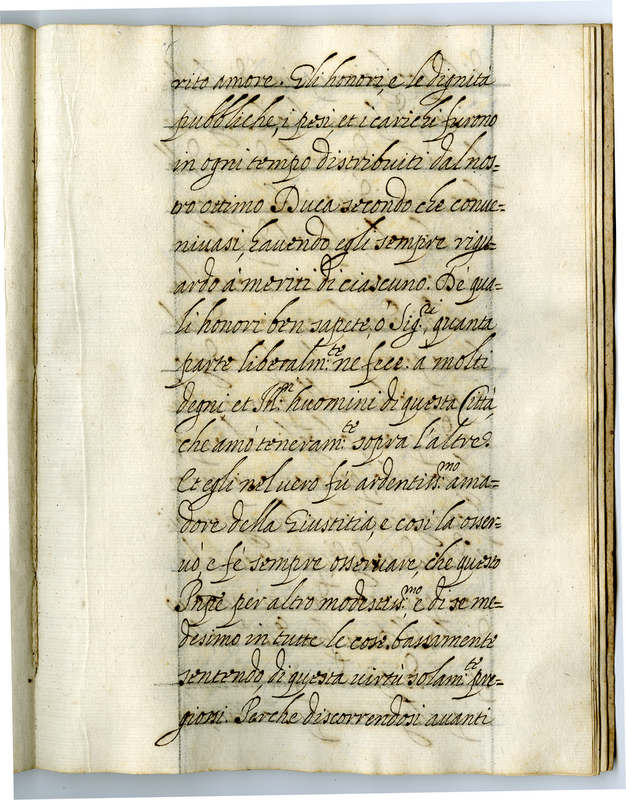 rito amore. Gli honori, e le dignità
pubbliche, i pesi, et i carichi furono
in ogni tempo distribuiti dal nos=
tro ottimo Duca secondo che conue=
niuasi, hauendo egli sempre rigu=
ardo a' meriti di ciascuno. De' qua=
li honori ben sapete, ò Sig.ri, quanta
parte liberalm.te ne fece à molti
degni et Ill.ri huomini di questa Città
che amò teneram.te sopra l'altre?
Et egli nel uero fù ardentiss.mo ama=
dore della Giustitia, e così la osser=
uò, e fè sempre osseruare, che questo
Pnpe per altro modestiss.mo e di se me=
desimo in tutte le cose bassamente
sentendo, di questa uirtù solam.te pre=
giossi. Perche discorrendosi auanti